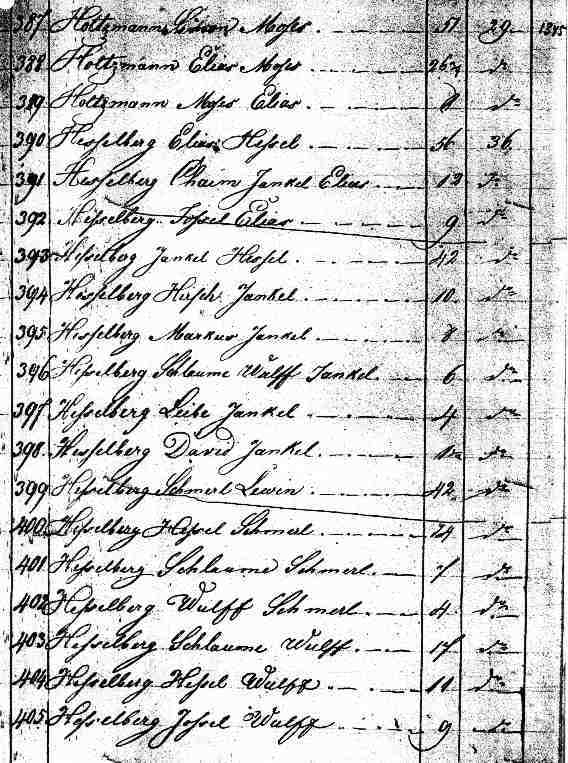 387 Holtzmann Simon Moses. 51 29. 1845
388 Holtzmann Elias Moses 26¾ do
389 Holtzmann Moses Elias. 8 do
390 Hesselberg Elias Hessel 56 36.
391 Hesselberg Chaim Jankel Elias 12 do
392 Hesselberg Jossel Elias 9 do
393 Hesselberg Jankel Hessel. 42 do
394 Hesselberg Hirsch Jankel. 10. do
395 Hesselberg Markus Jankel 8 do
396 Hesselberg Schlaume Wulff Jankel. 6 do
397 Hesselberg Leibe Jankel 4 do
398. Hesselberg David Jankel. do
399 Hesselberg Schmerl Lewin. 42 do
400 Hesselberg Hessel Schmerl 14 do
401 Hesselberg Schlaume Schmerl. 7 do
402 Hesselberg Wulff Schmerl. 4. do
403 Hesselberg Schlaume Wulff. 17 do
404 Hesselberg Hessel Wulff 11 do
405 Hesselberg Jossel Wulff 9 do